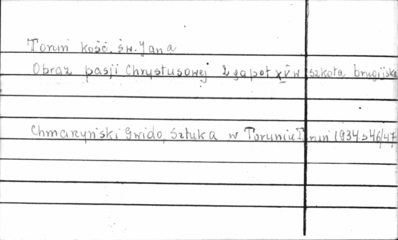 Toruń kość. św. Jana
Obraz pasji Chrystusowej 2 ga poł XV w szkoła brugijska
Chmarzyński Gwido, Sztuka w Toruniu Toruń 1934 s 46/47